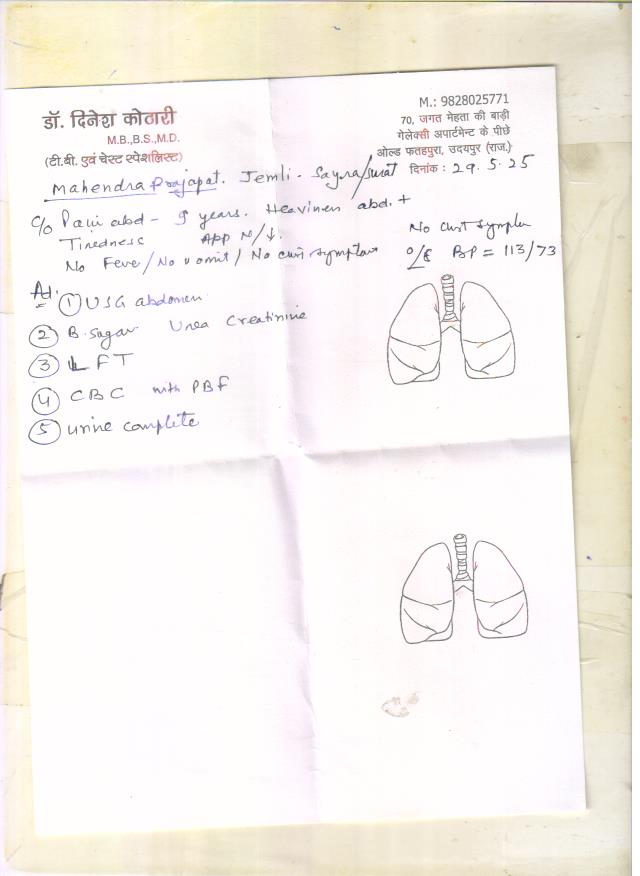 डॉ. दिनेश कोठारी
M.B.,B.S.,M.D.
(टी.बी. एवं चेस्ट स्पेशलिस्ट)
M.: 9828025771
70, जगत मेहता की बाड़ी
गेलेक्सी अपार्टमेन्ट के पीछे
ओल्ड फतहपुरा, उदयपुर (राज.)
दिनांक : 29.5.25
Mahendra Prajapat. Jemli - Sayra/Surat
c/o Pain abd - 5 years. Heaviness abd. +
Tiredness App N/↓.
No Fever/No vomit/No
No
o/E BP = 113/73
Ad.
① USG abdomen
② B. Sugar Urea Creatinine
③ LFT
④ CBC with PBF
⑤ urine complete